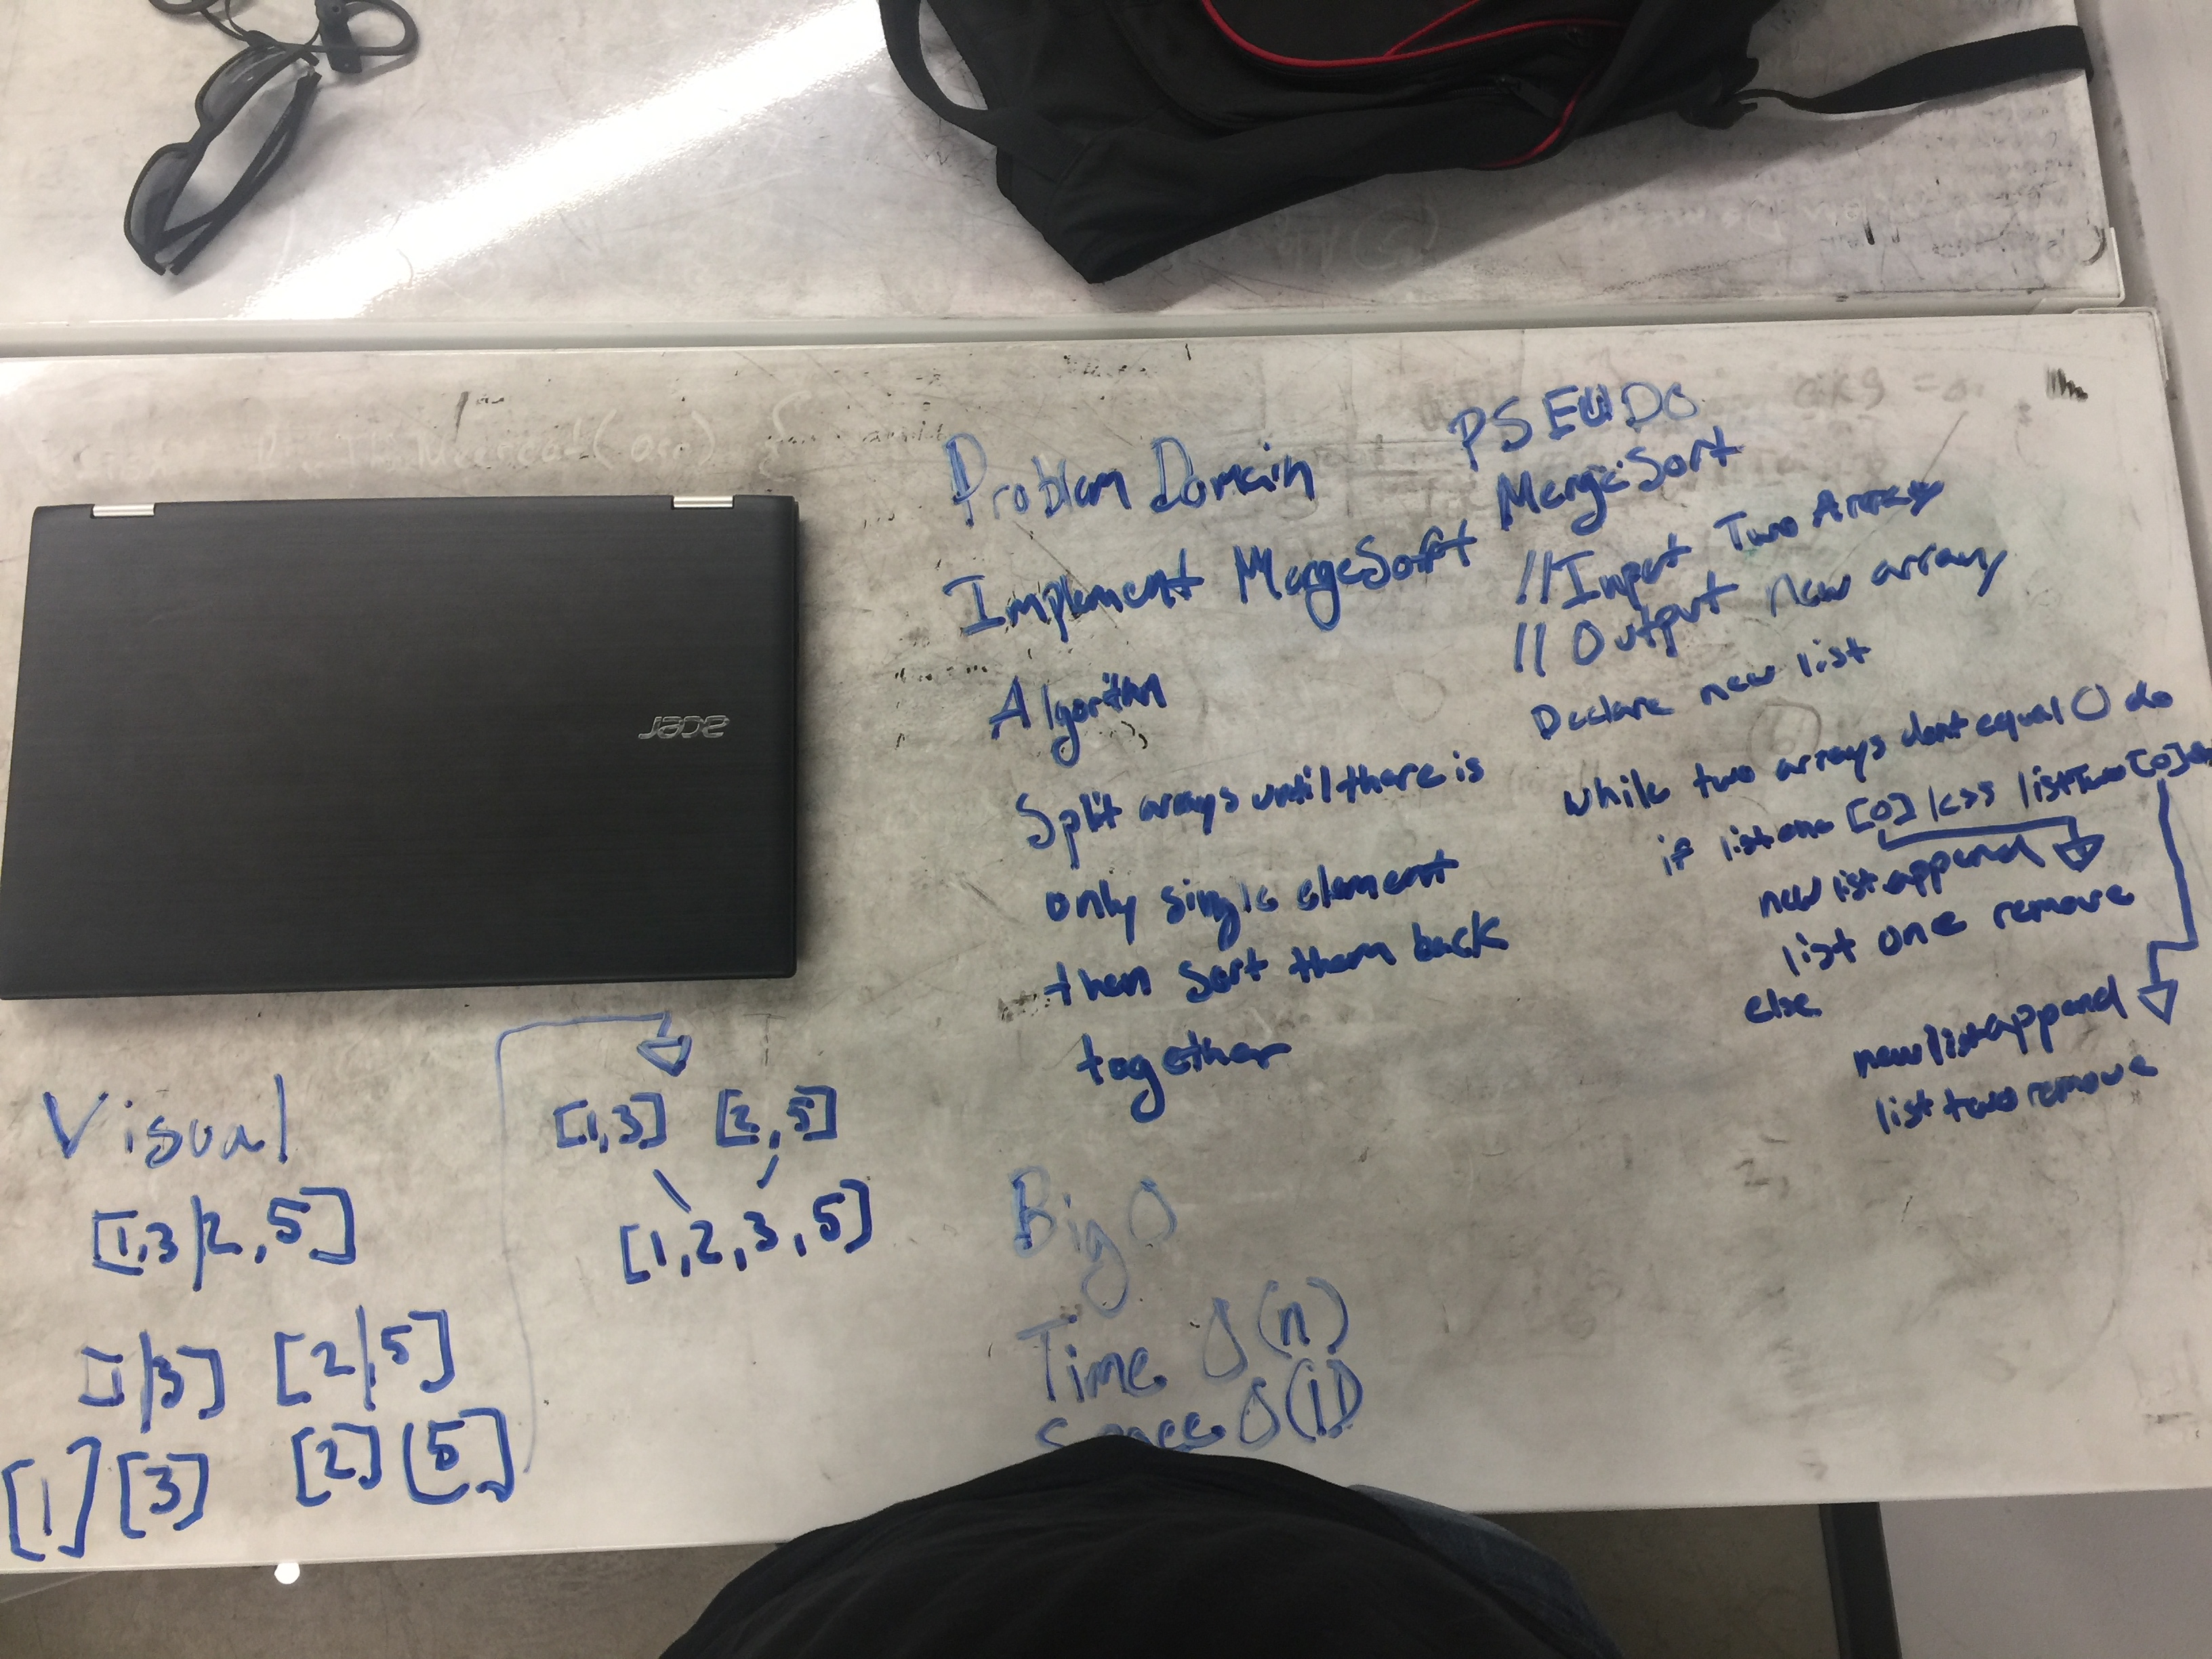 acer
Visual
[1,3|2,5]
[1|3] [2|5]
[1] [3] [2] [5]
[1,3] [2,5]
[1,2,3,5]
Problem Domain
Implement MergeSort
Algorithm
Split arrays until there is
only single element
then sort them back
together
Big O
Time O(n)
Space O(1)
PSEUDO
MergeSort
//Input Two Array
//Output new array
Declare new list
while two arrays dont equal 0 do
if list one [0] less list two [0]
new list append
list one remove
else
new list append
list two remove